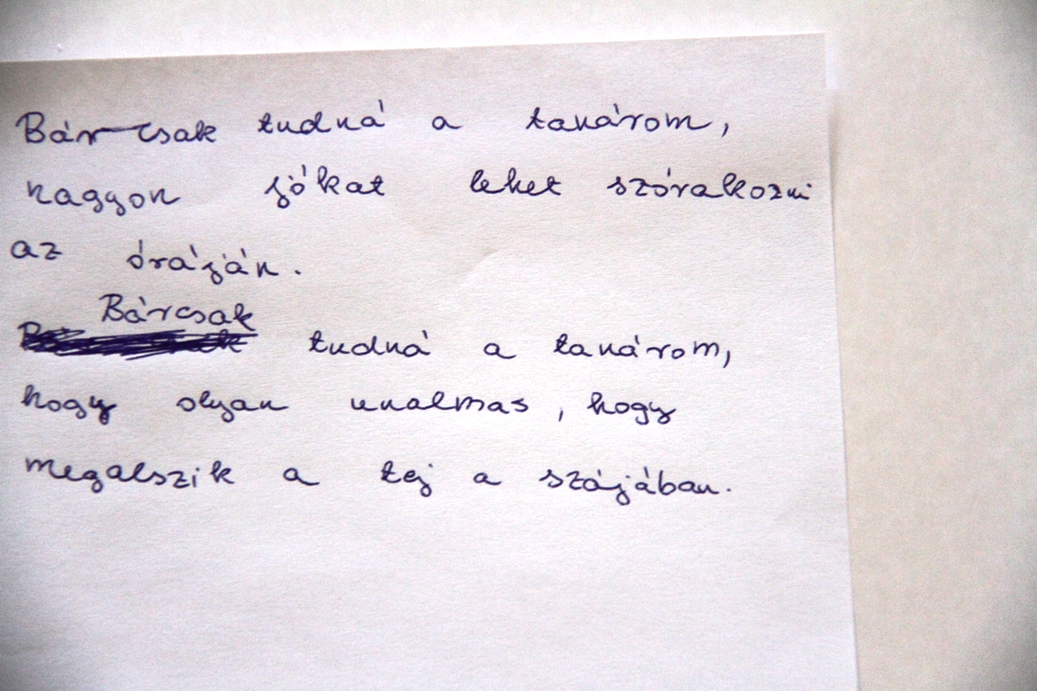 Bárcsak tudná a tanárom,
naggyon jókat lehet szórakozni
az óráján.
Bárcsak
tudná a tanárom,
hogy olyan unalmas, hogy
megalszik a tej a szájában.